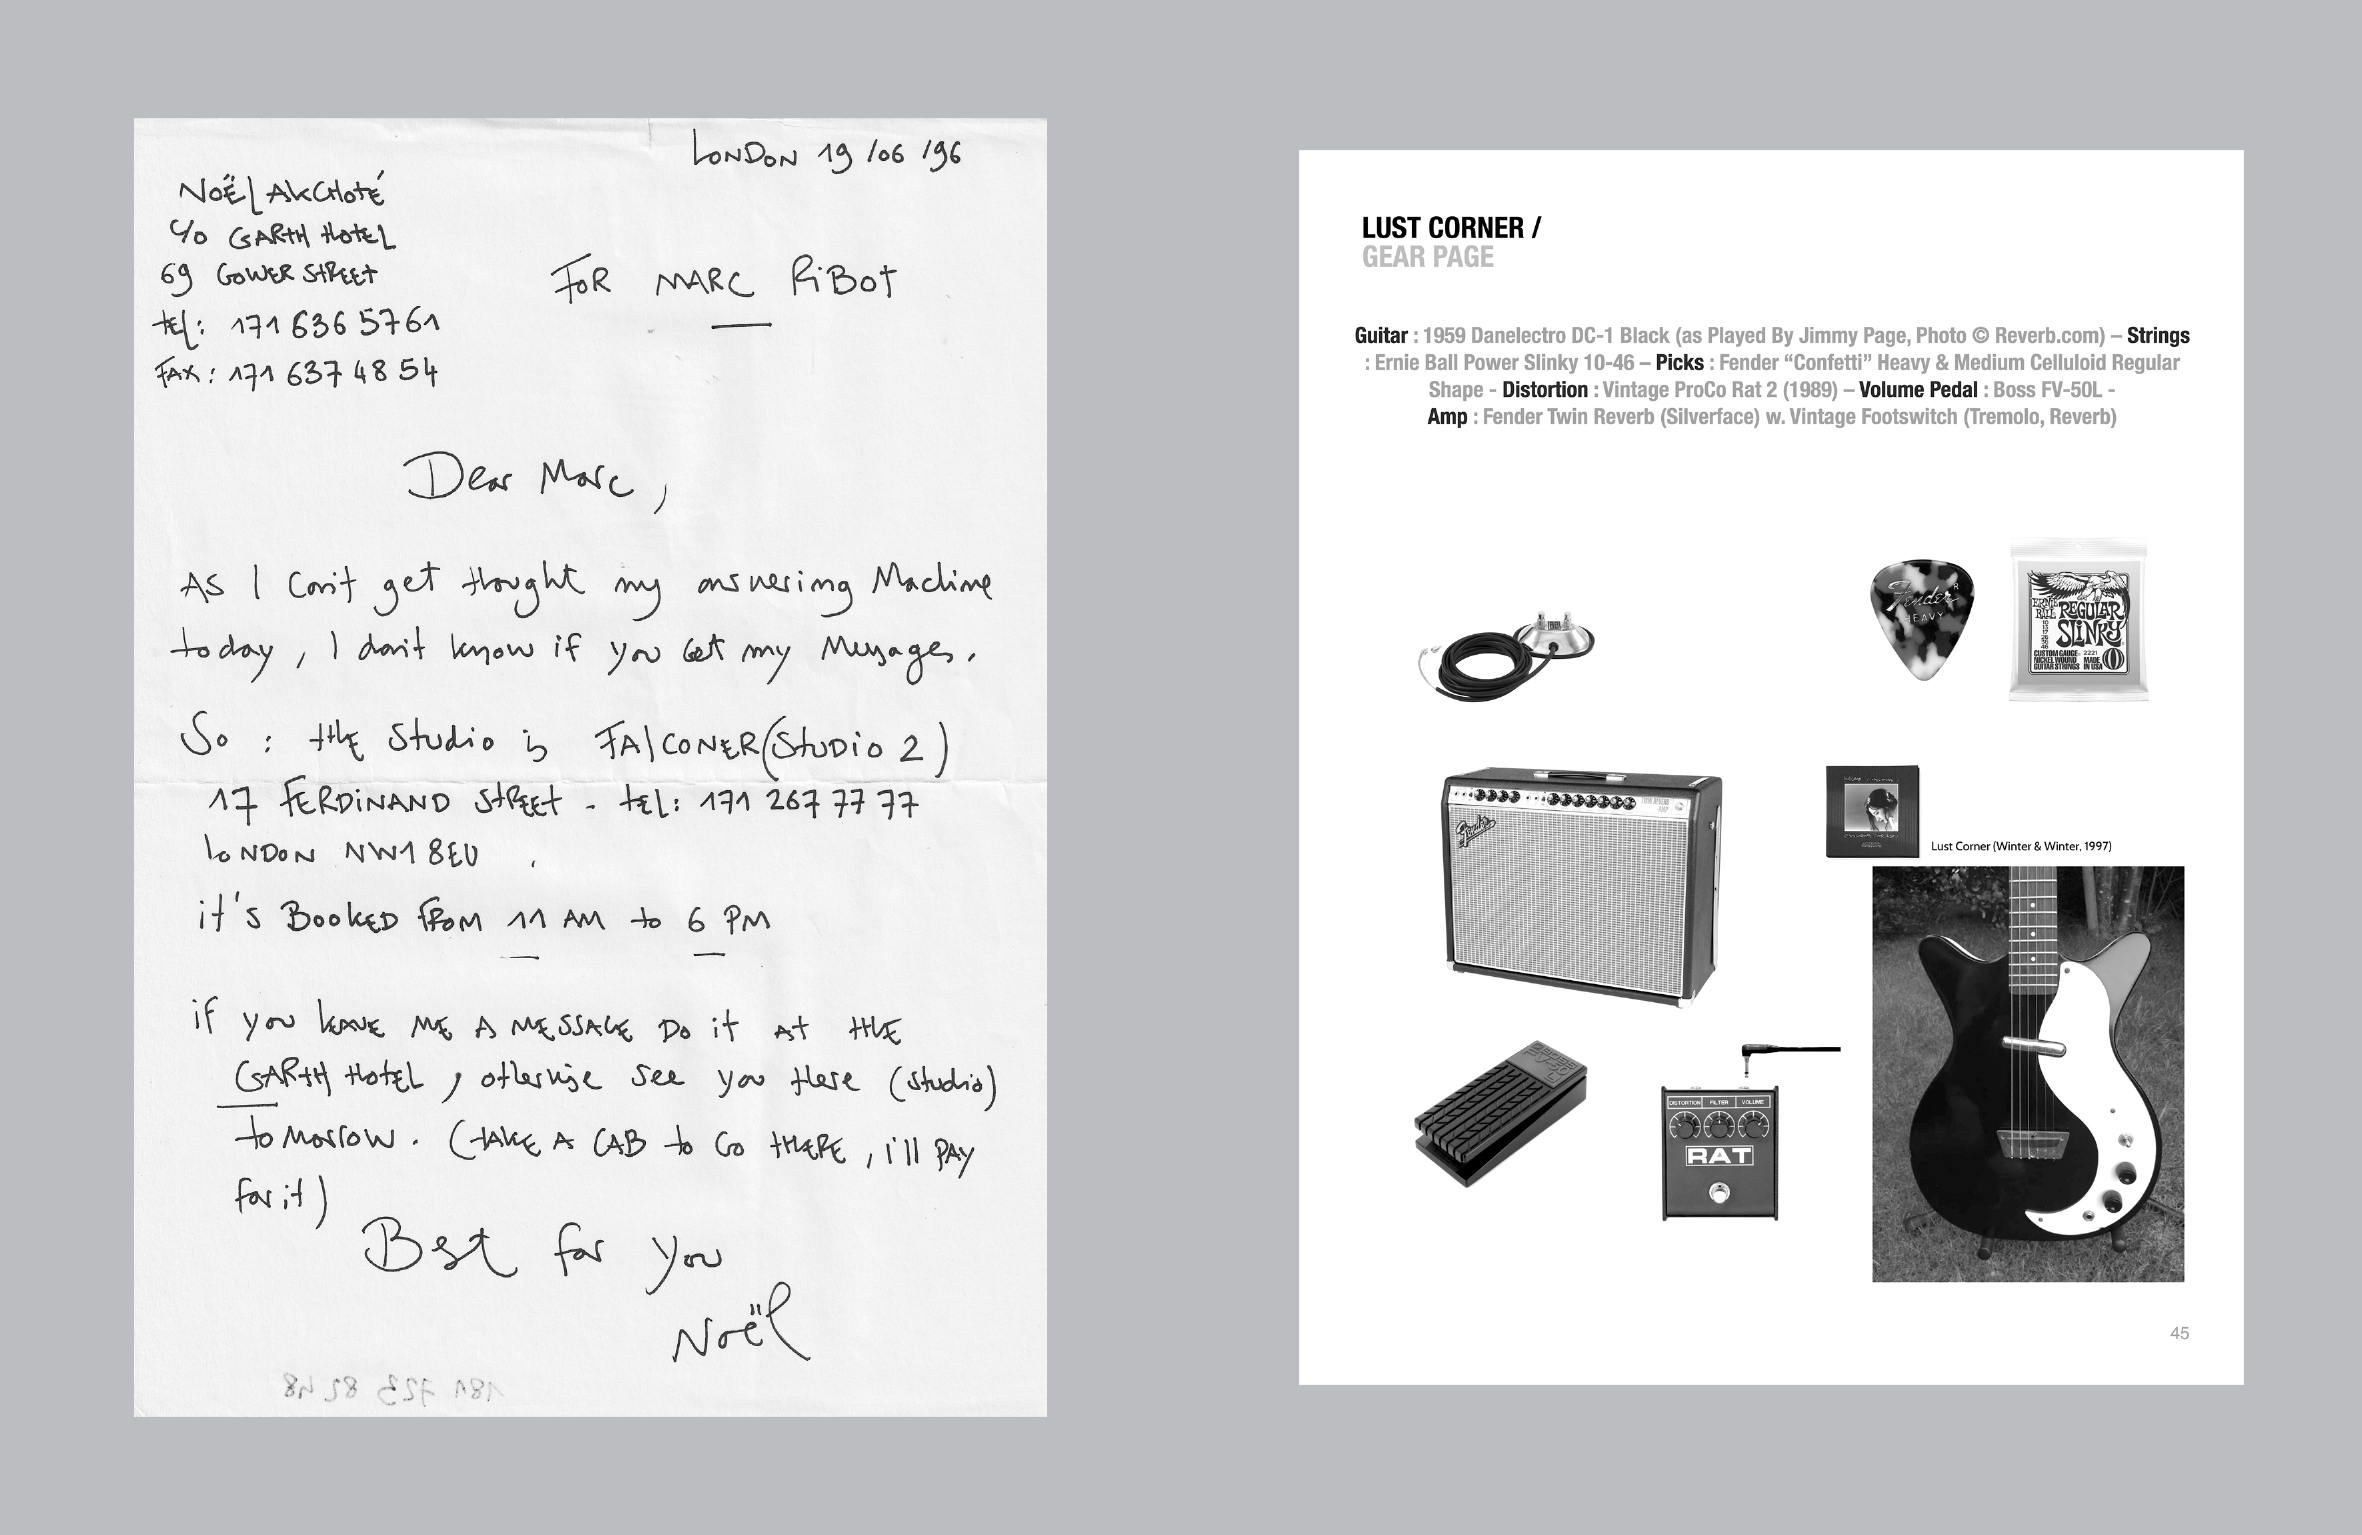 LONDON 19/06/96
NOËL AKCHOTÉ
c/o GARTH HOTEL
69 GOWER STREET
tEL: 171 636 5761
FAX: 171 637 48 54
FOR MARC RIBOT
Dear Marc,
AS I Can't get thought my answering Machine
today, I don't know if you Get my Messages.
So : tHE Studio is FALCONER (Studio 2)
17 FERDINAND STREET - tEL: 171 267 77 77
LONDON NW1 8EU.
it's BOOKED FROM 11 AM to 6 PM
if you LEAVE ME A MESSAGE DO it At tHE
GARTH HOTEL, otherwise see you there (studio)
tomorrow. (tAKE A CAB to GO tHERE, i'll PAY
for it)
Best for you
Noël
181 723 82 48
LUST CORNER /
GEAR PAGE
Guitar : 1959 Danelectro DC-1 Black (as Played By Jimmy Page, Photo © Reverb.com) – Strings
: Ernie Ball Power Slinky 10-46 – Picks : Fender “Confetti” Heavy & Medium Celluloid Regular
Shape - Distortion : Vintage ProCo Rat 2 (1989) – Volume Pedal : Boss FV-50L -
Amp : Fender Twin Reverb (Silverface) w. Vintage Footswitch (Tremolo, Reverb)
Fender
HEAVY
ERNIE BALL
REGULAR
SLINKY
CUSTOM GAUGE 2221
NICKEL WOUND MADE
GUITAR STRINGS IN USA
Fender
TWIN REVERB
Lust Corner (Winter & Winter, 1997)
DISTORTION FILTER VOLUME
RAT
45